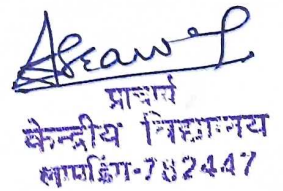 प्राचार्य
केन्द्रीय विद्यालय
लामडिंग-782447